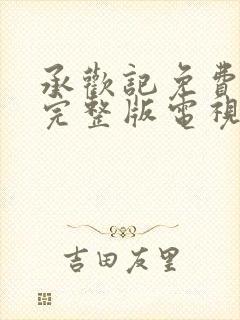 承歡記免費
完整版電視
吉田友里